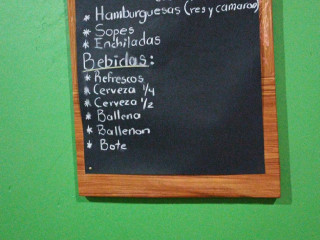 * Hamburguesas (res y camaron)
* Sopes
* Enchiladas
Bebidas:
* Refrescos
* Cerveza 1/4
* Cerveza 1/2
* Ballena
* Ballenon
* Bote